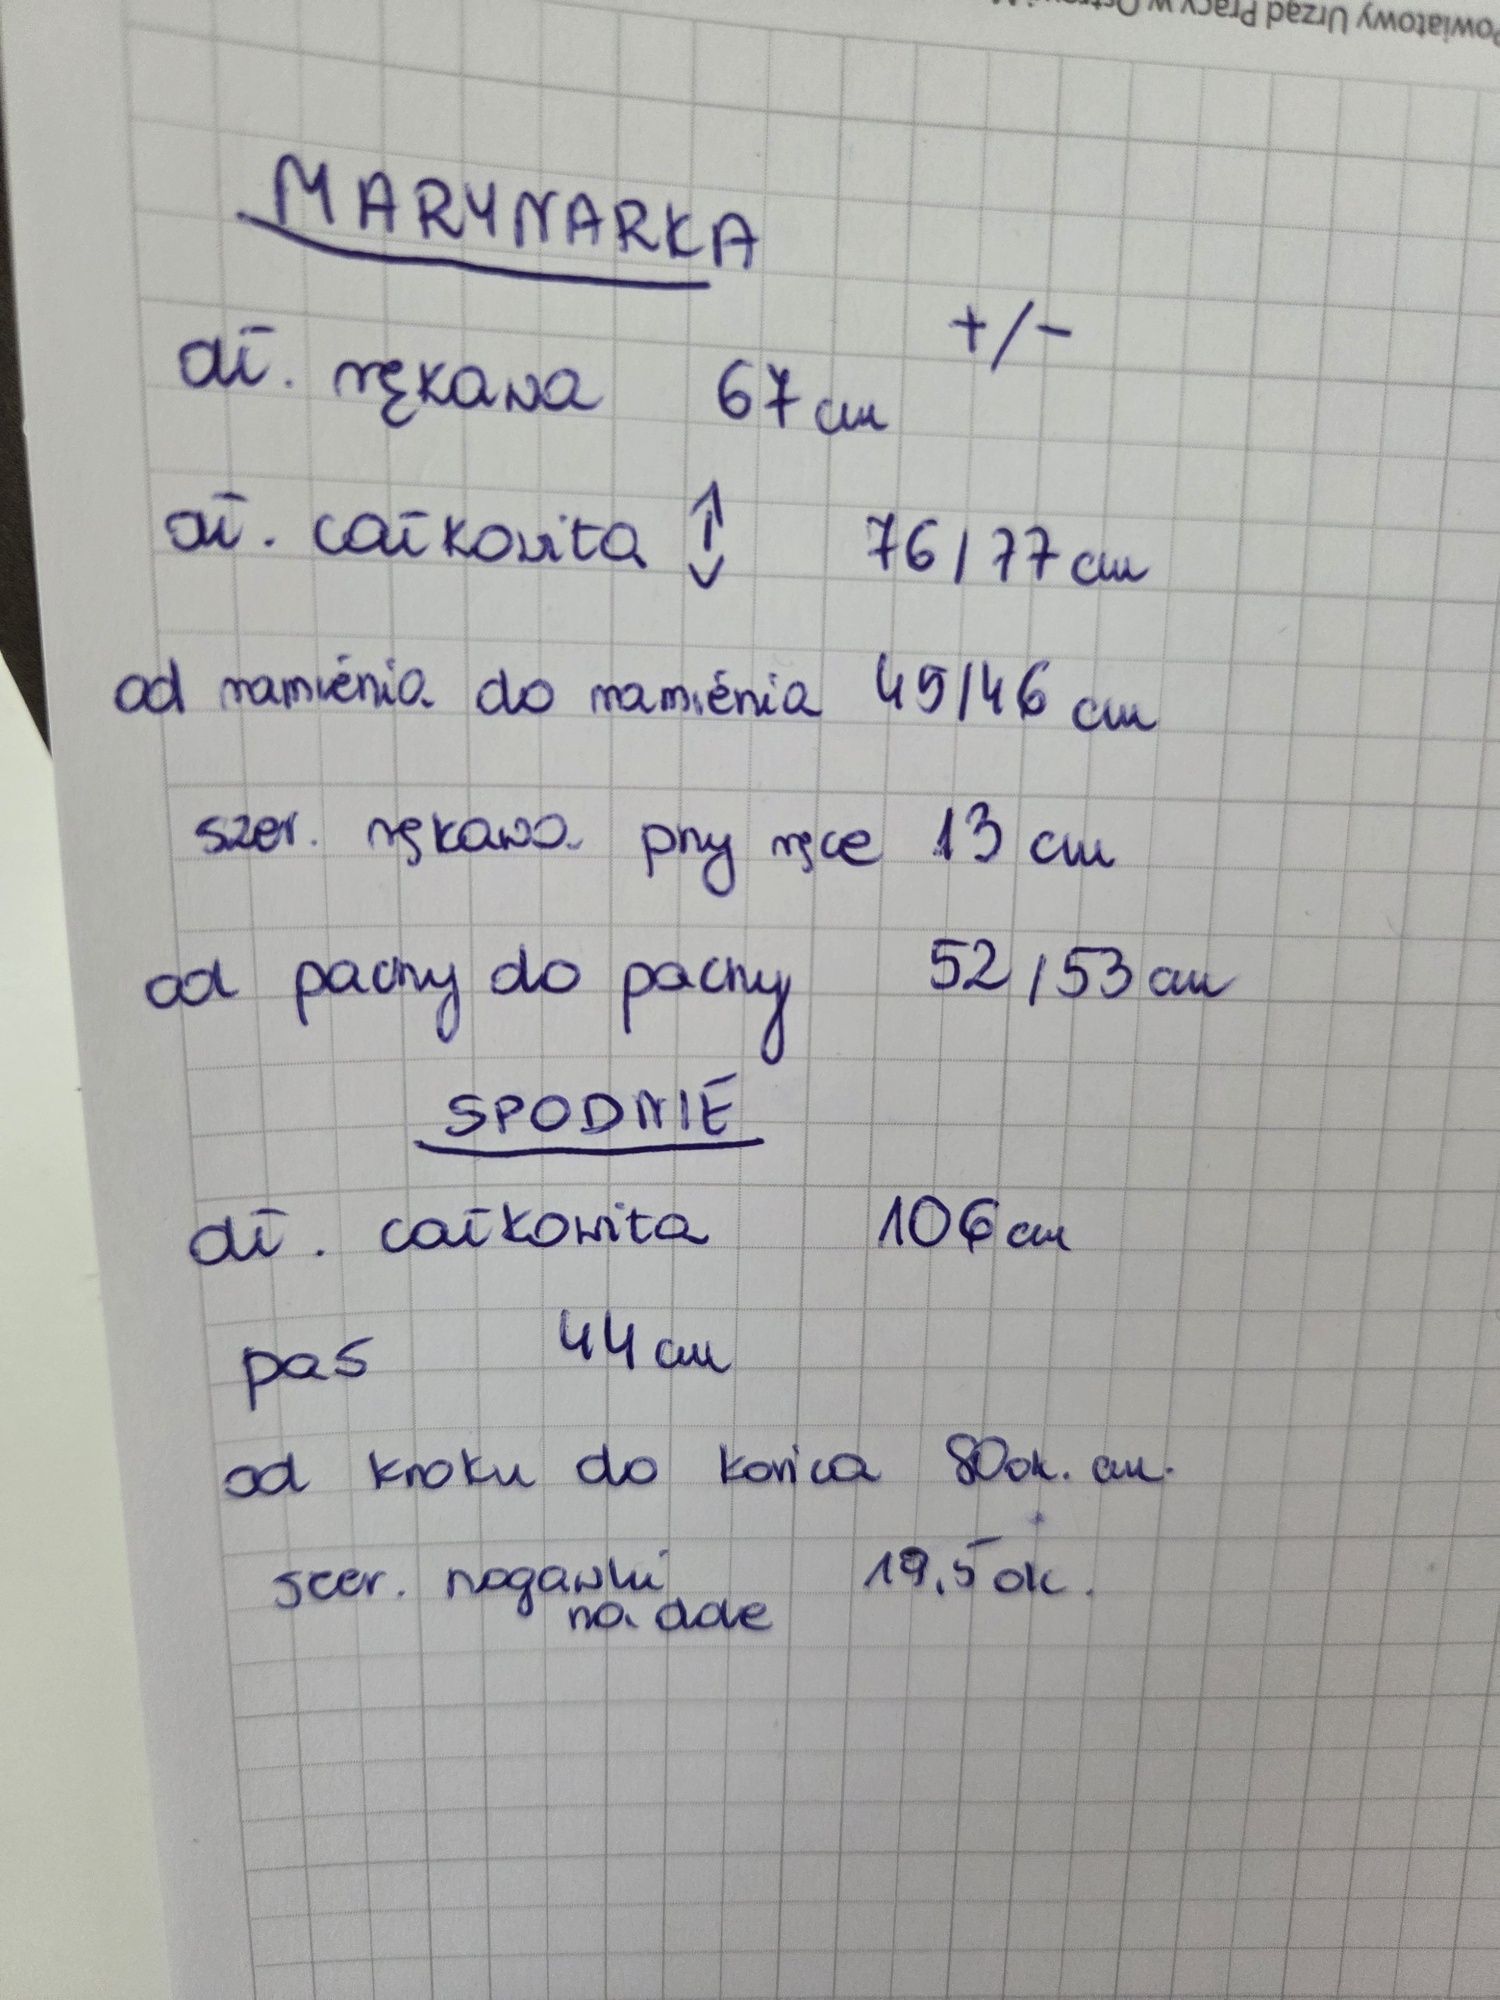 Powiatowy Urząd Pracy w
MARYNARKA
+/-
dł. rękawa 67 cm
dł. całkowita ↕ 76/77 cm
od ramienia do ramienia 45/46 cm
szer. rękawa przy ręce 13 cm
od pachy do pachy 52/53 cm
SPODNIE
dł. całkowita 106 cm
pas 44 cm
od kroku do końca 80 ok. cm.
szer. nogawki 19,5 ok.
na dole